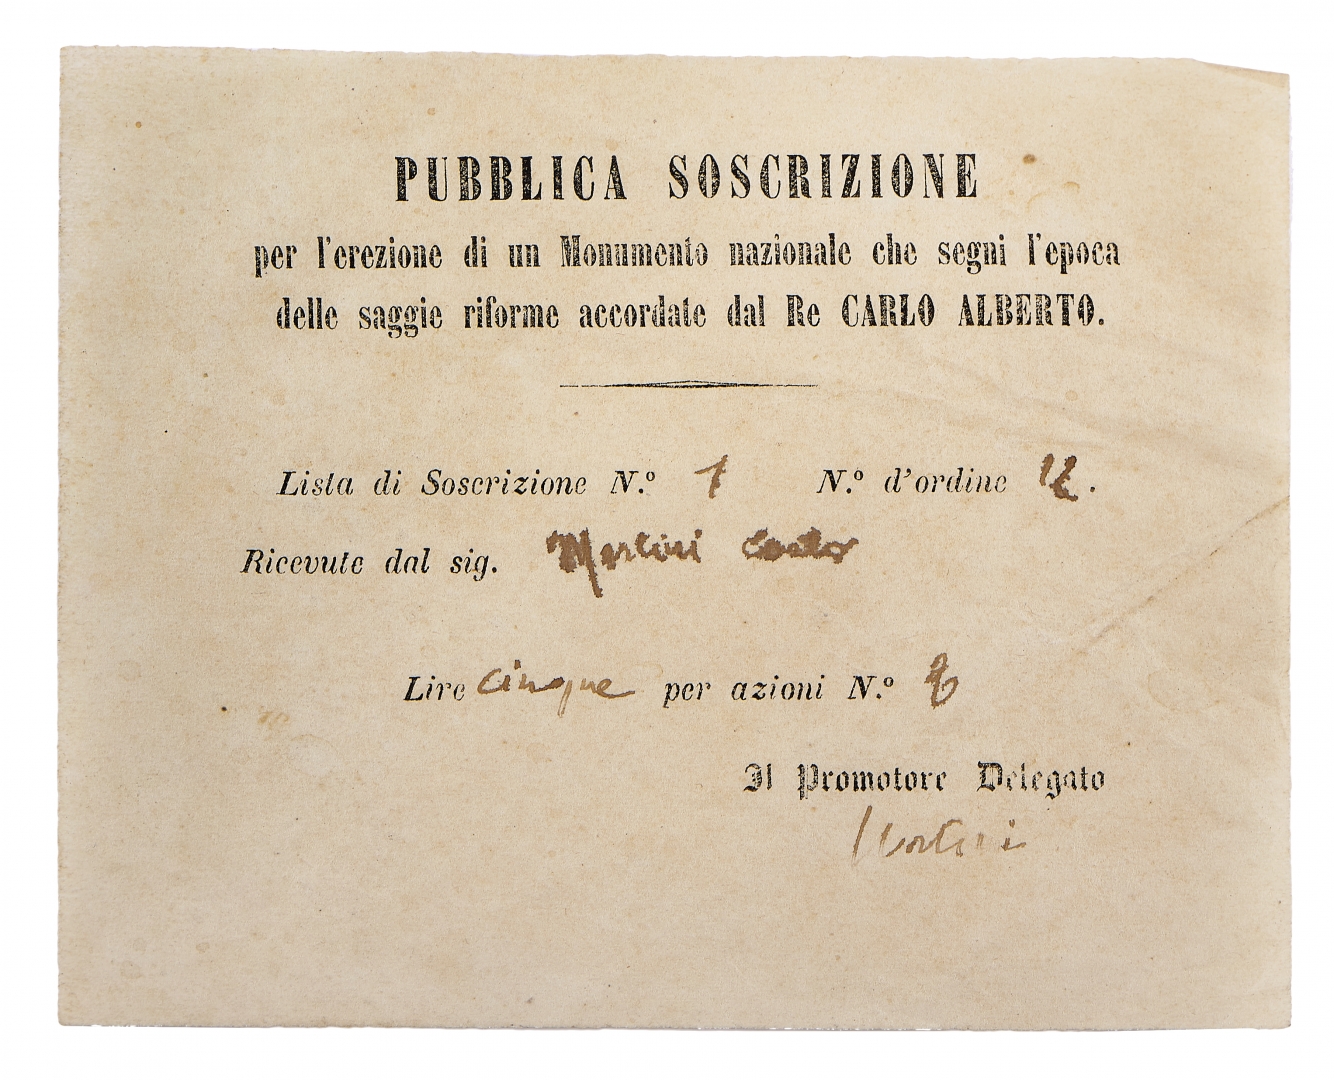 PUBBLICA SOSCRIZIONE
per l'erezione di un Monumento nazionale che segni l'epoca
delle saggie riforme accordate dal Re CARLO ALBERTO.
Lista di Soscrizione N.º 1 N.º d'ordine 12.
Ricevute dal sig. Martini
Lire cinque per azioni N.º
Il Promotore Delegato